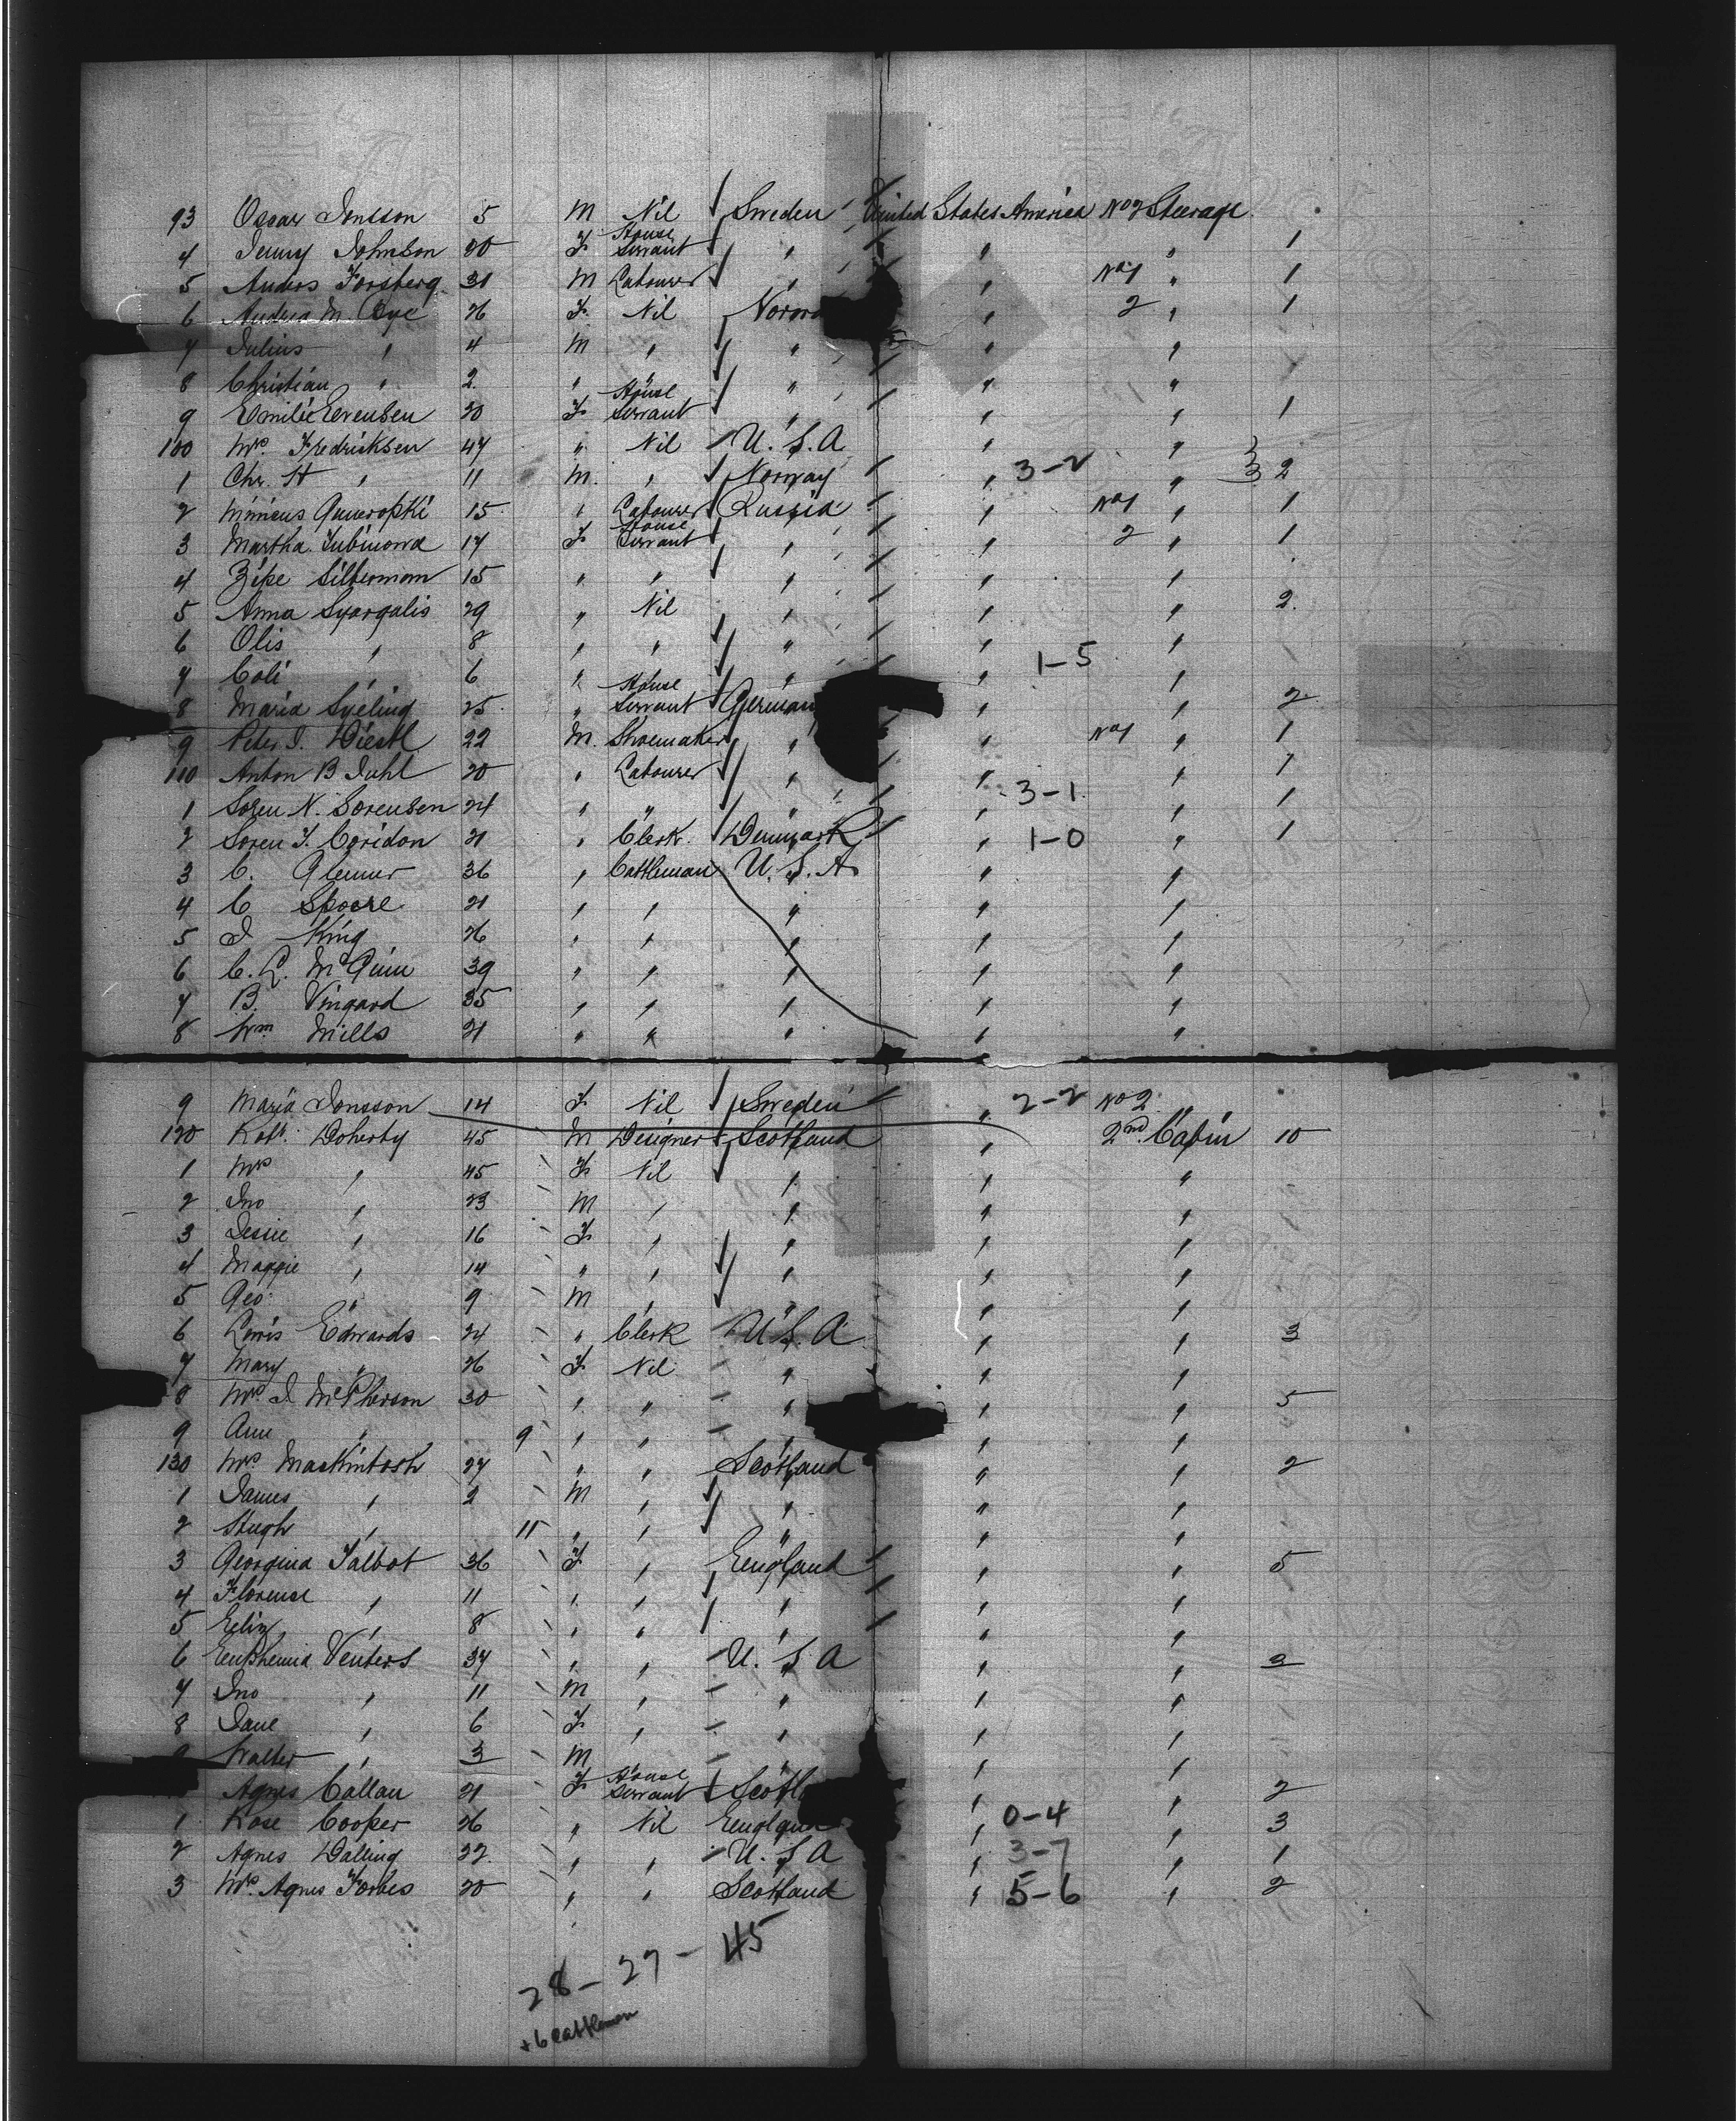 93 Oscar Jonsson 5 M Nil Sweden United States America No 2 Steerage
4 Jenny Johnson 20 F House Servant " " " 1
5 Anders Forsberg 31 M Labourer " " No 1 " 1
6 Andrea M. Bye 26 F. Nil Norwa " 2 " 1
7 Julius " 4 M " " " "
8 Christian " 2 " " " " "
9 Emilie Evensen 20 F House Servant " " " 1
100 Mrs. Fredriksen 47 " Nil U.S.A " "
1 Chr. H " 11 M. " Norway " 3-2 " 3 2
2 15 " Labourer Russia " No 1 " 1
3 Martha 17 F House Servant " " 2 " 1
4 Zipe Silbermom 15 " " " " "
5 Anna Syargalis 29 " Nil " " " 2.
6 Olis " 8 " " " " "
7 Coli " 6 " " " 1-5 "
8 Maria Syeling 25 " House Servant German " " 2
9 Peter J. Diestl 22 M. Shoemaker " " No 1 " 1
110 Anton B Juhl 20 " Labourer " " " 1
1 Soren N. Sorensen 24 " " " " 3-1 " 1
2 Soren F. Coridon 21 " Clerk Denmark " 1-0 " 1
3 C. Glenner 36 " Cattleman U.S.A " "
4 C Spoore 21 " " " " "
5 J King 26 " " " " "
6 C. L. McGinn 39 " " " " "
7 B. Vingard 35 " " " " "
8 Wm Mills 21 " " " " "
9 Maria Jonsson 14 F Nil Sweden " 2-2 No 2 "
120 Robt. Doherty 45 M Designer Scotland " 2nd Cabin 10
1 Mrs " 45 F Nil " " "
2 Jno " 23 M " " " "
3 Jessie " 16 F " " " "
4 Maggie " 14 " " " " "
5 Geo " 9 M " " " "
6 Lewis Edwards 24 " Clerk U.S.A " " 3
7 Mary " 26 F Nil " " "
8 Mrs. J McPherson 30 " " " " " 5
9 Ann " 9 " " " " "
130 Mrs Mackintosh 27 " " Scotland " " 2
1 James " 2 M " " " "
2 Hugh " 11 " " " " "
3 Georgina Talbot 36 F " England " " 5
4 Florence " 11 " " " " "
5 Eliz " 8 " " " " "
6 Euphemia Venters 37 " " U.S.A " " 3
7 Jno " 11 M " " " "
8 Jane " 6 F " " " "
9 Walter " 3 M " " " "
Agnes Callan 21 F House Servant Scotla " " 2
1 Rose Cooper 26 " Nil England " 0-4 " 3
2 Agnes Dalling 22. " " U.S.A " 3-7 " 1
3 Mrs. Agnes Forbes 20 " " Scotland " 5-6 " 2
28-27-45
+6 cattlemen